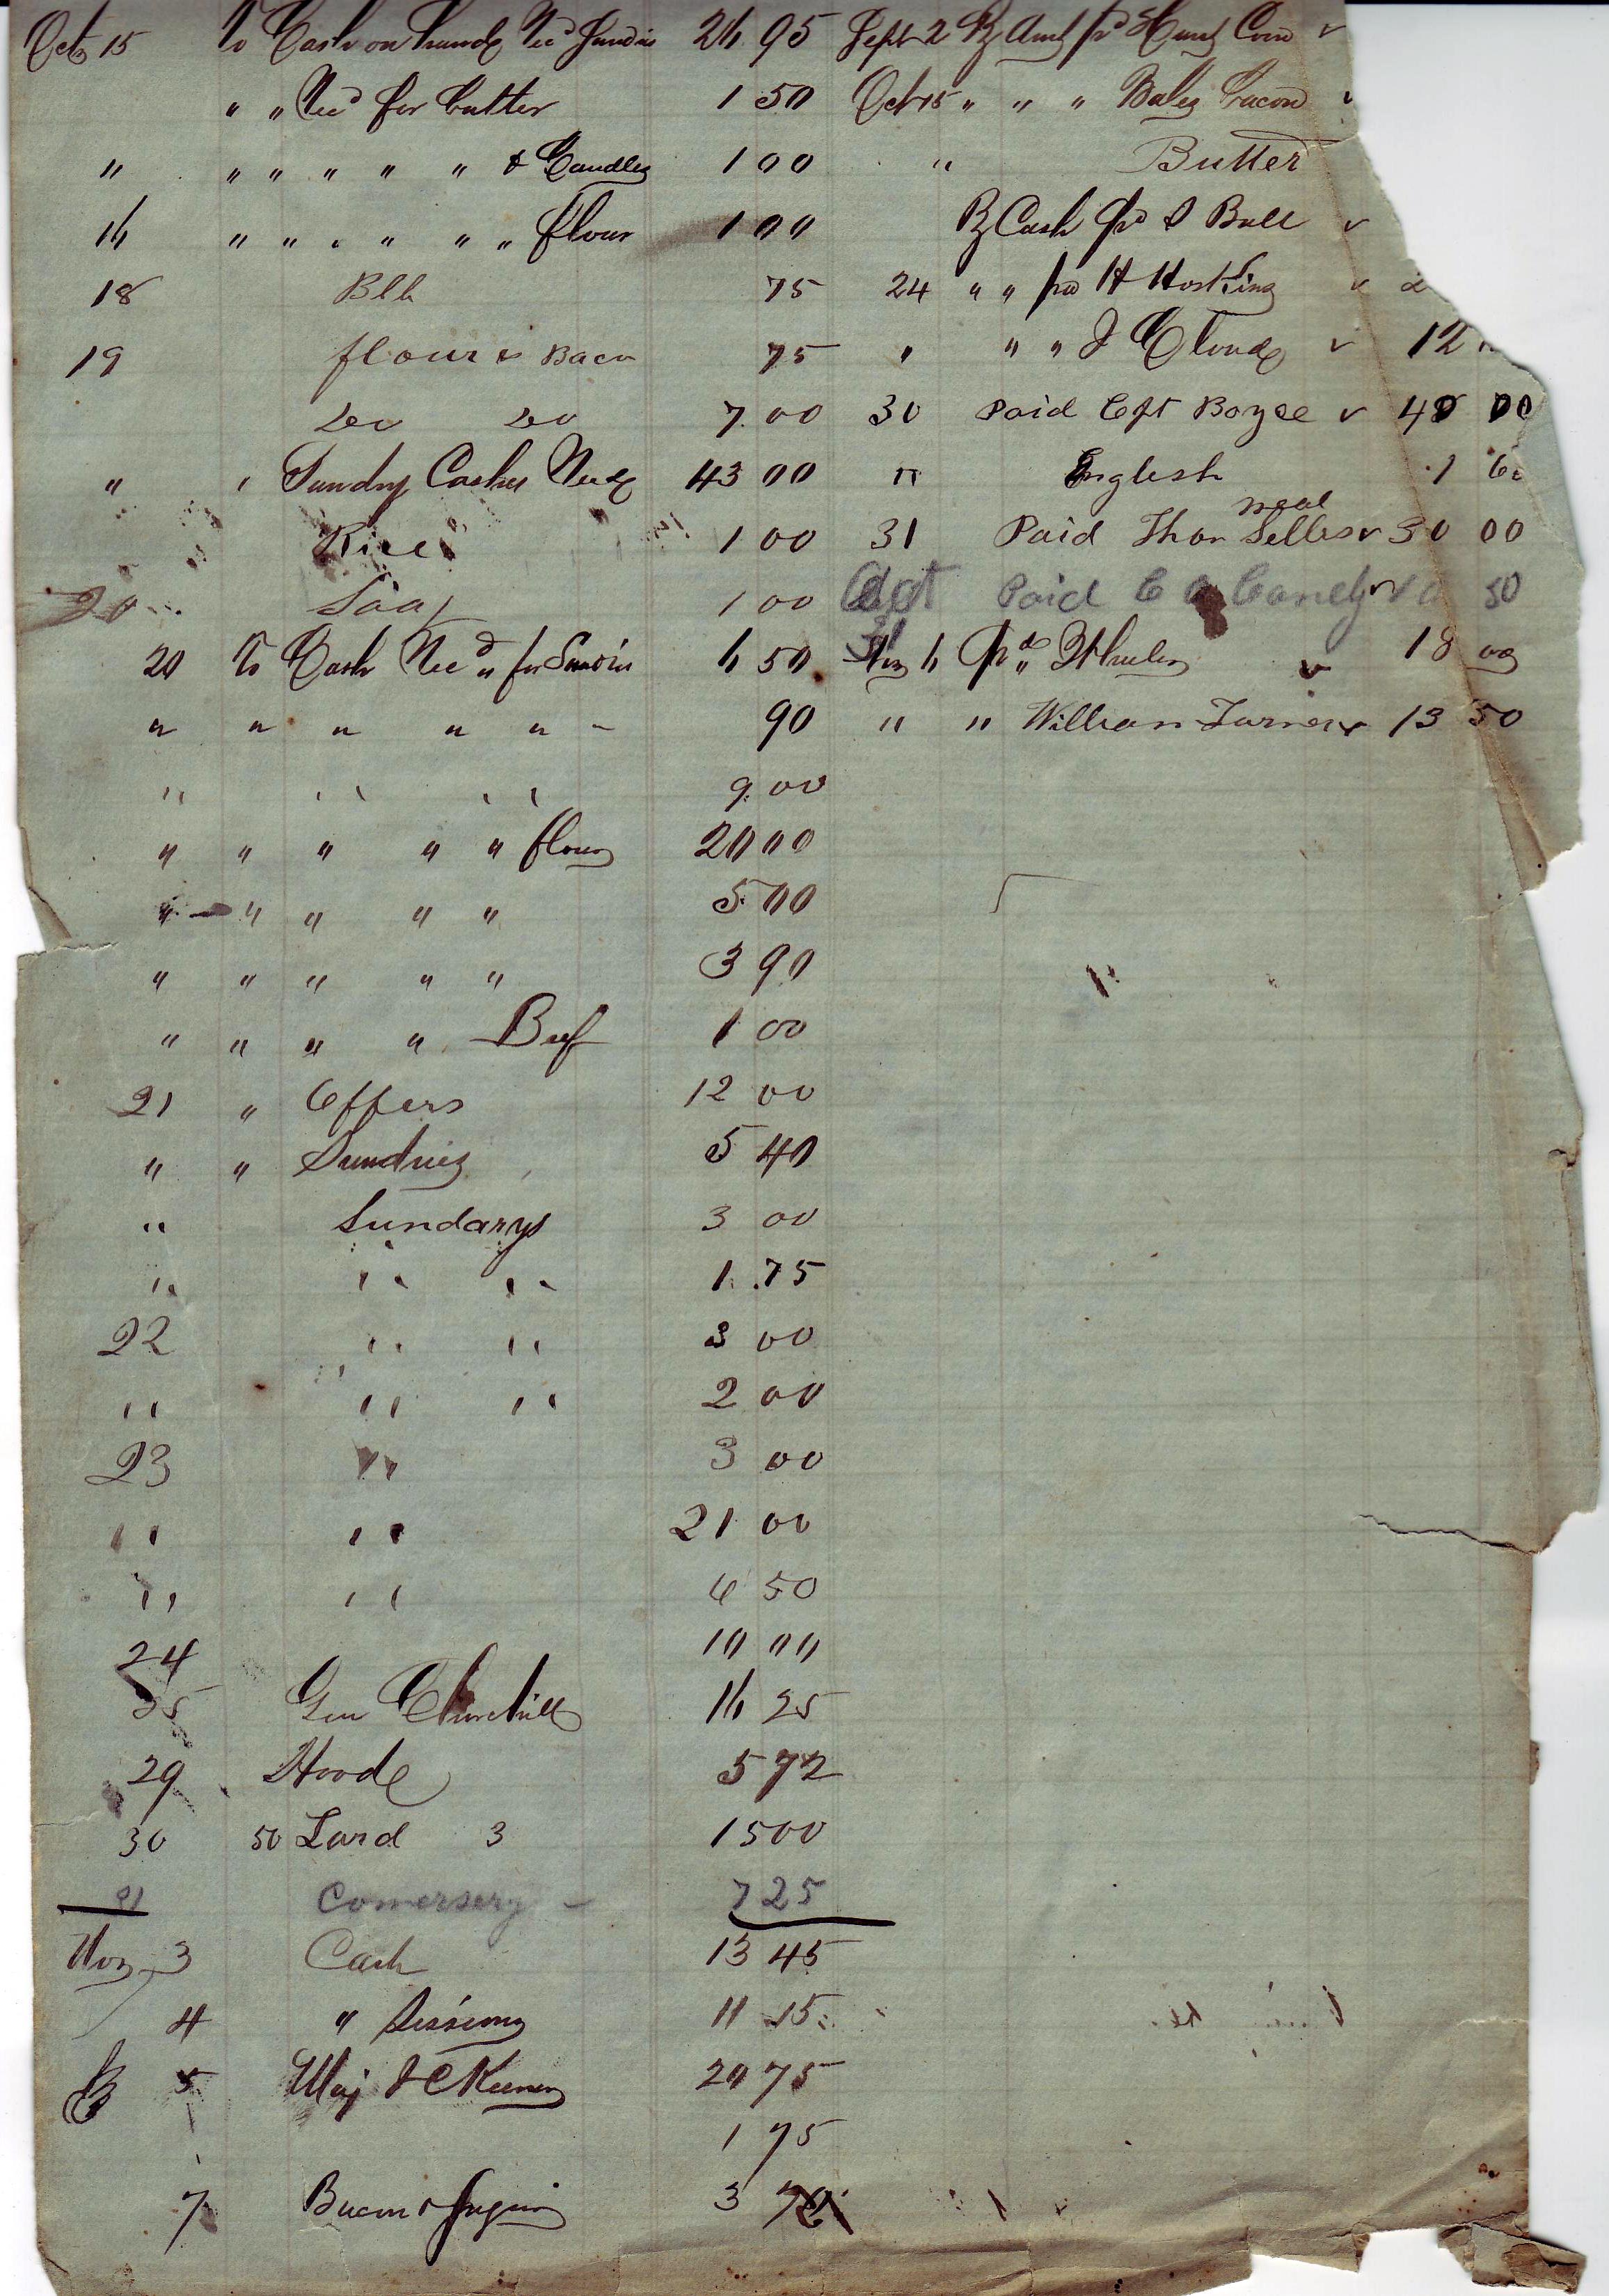 Oct 15 To Cash on hand Recd Sundries 26 95 Sept 2 By Amt pd Hunt Corn v
" " Recd for butter 1 50 Oct 15 " " " Baley bacon v
" " " " " " & Candles 1 00 " Butter
16 " " " " " " flour 1 00 By Cash pd I Bull v
18 Blk 75 24 " " pd H Hosking v
19 flour & Bacn 75 " " " J Cloud v 12
do do 7 00 30 Paid Cpt Boyce v 40 00
" " Sundry Cashes Recd 43 00 " English 1
Rice 1 00 31 Paid Thos neal Sellers v 30 00
20 Soap 1 00 Oct 31 Paid C Candy v 50
20 To Cash Recd " for Sundries 6 50 Nov 6 Pd " Wheeler v 18 00
" " " " " - 90 " " William Turner v 13 50
" " " " " 9 00
" " " " " flour 20 00
" - " " " " 5 00
" " " " " 3 90
" " " " Beef 1 00
21 " Offers 12 00
" " Sundries 5 40
" Sundarys 3 00
" " " 1 75
22 " " 3 00
" " " 2 00
23 " 3 00
" " 21 00
" " 6 50
24 10 00
25 Gen Churchill 16 25
29 Hood 5 72
30 50 Lard 3 15 00
31 Comersery - 7 25
Nov 3 Cash 13 45
4 " Sissions 11 15
5 Maj J C Keener 20 75
1 75
7 Bacon & 3